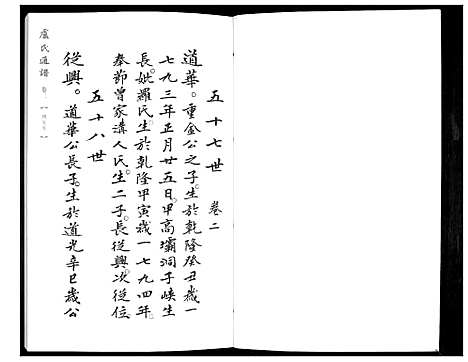 五十七世　卷二
道華。重金公之子。生於乾隆癸丑歲一
七九三年正月廿五日。甲高壩洞子峽生
長。妣羅氏。生於乾隆甲寅歲一七九四年。
奉節曾家溝人氏。生二子。長從興。次從位
五十八世
從興。道華公長子。生於道光辛巳歲公
盧氏通譜